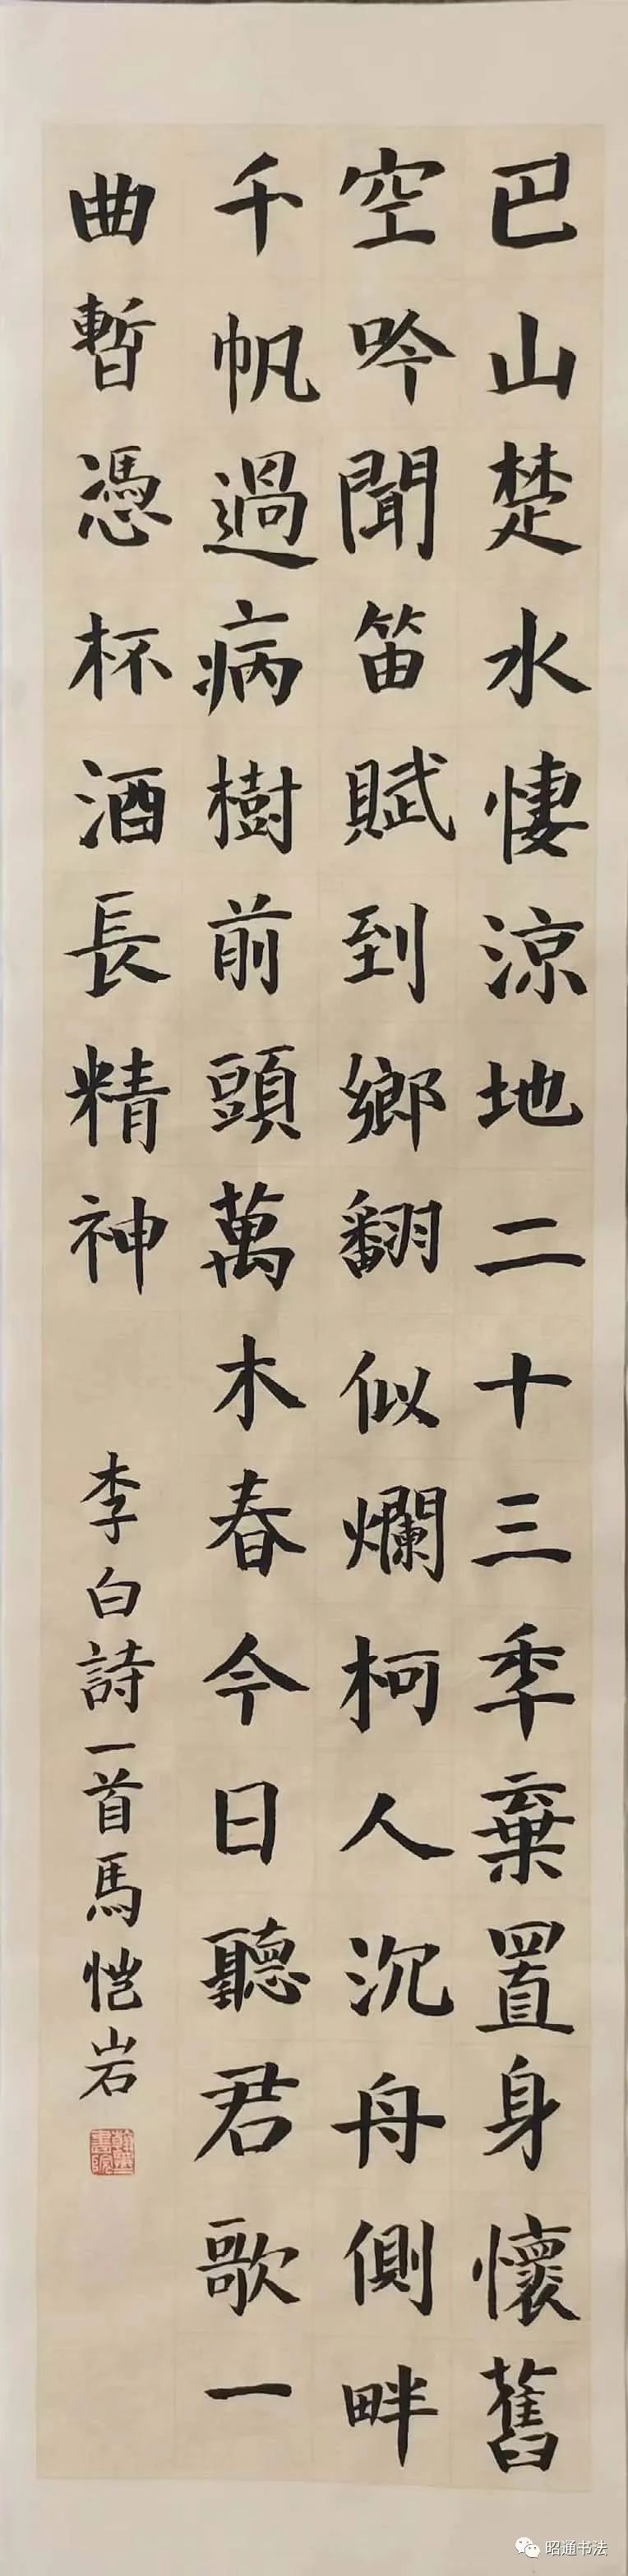 巴山楚水悽涼地二十三秊棄置身懷舊
空吟聞笛賦到鄉翻似爛柯人沉舟側畔
千帆過病樹前頭萬木春今日聽君歌一
曲暫憑杯酒長精神
李白詩一首馬愷岩
昭通书法